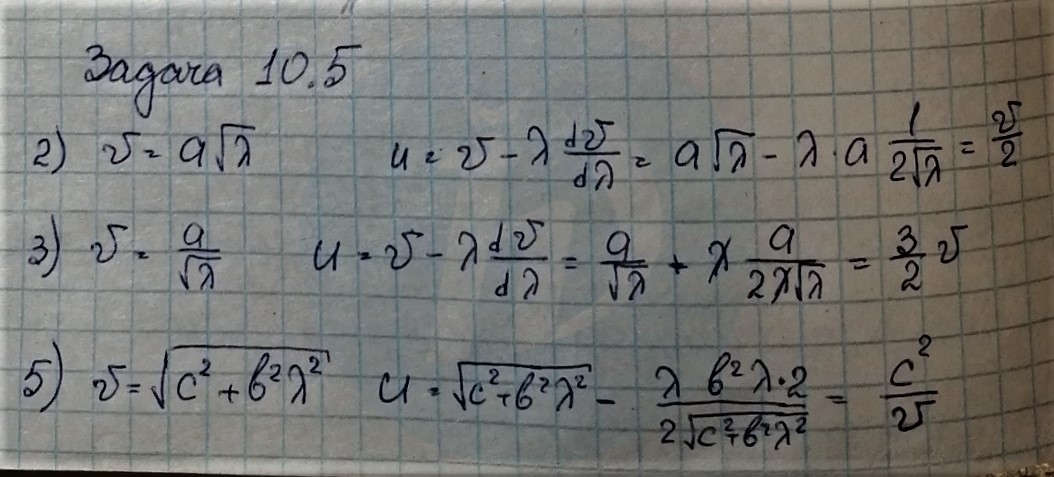 Задача 10.5
2) v = a√λ   u = v - λ dv/dλ = a√λ - λ·a 1/(2√λ) = v/2
3) v = a/√λ   u = v - λ dv/dλ = a/√λ + λ a/(2λ√λ) = 3/2 v
5) v = √(c² + b²λ²)   u = √(c²+b²λ²) - (λ b²λ·2)/(2√(c²+b²λ²)) = c²/v